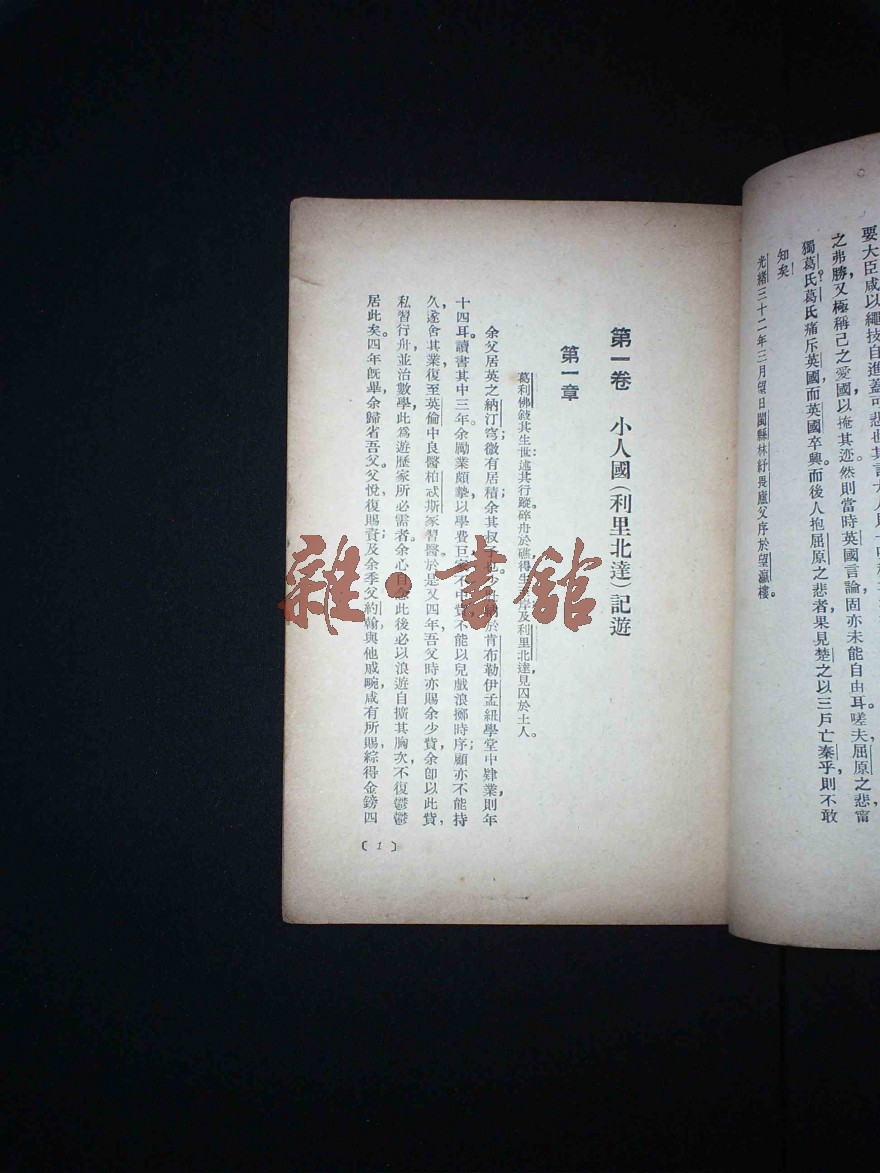 要大臣咸以繩技自進蓋可悲也其言大人
之弗勝又極稱己之愛國以掩其迹然則當時英國言論固亦未能自由耳嗟夫屈原之悲甯
獨葛氏葛氏痛斥英國而英國卒興而後人抱屈原之悲者果見楚之以三戶亡秦乎則不敢
知矣
光緒三十二年三月望日閩縣林紓畏廬父序於望瀛樓。
第一卷 小人國(利里北達)記遊
第一章
葛利佛敍其生世;述其行蹤碎舟於礁得生 岸及利里北達見囚於土人。
余父居英之納汀穹;微有居積余其叔子也少 於肯布勒伊孟紐學堂中肄業則年
十四耳。讀書其中三年。余勵業頗摯以學費巨 不中貲不能以兒戲浪擲時序;顧亦不能持
久,遂舍其業,復至英倫中良醫柏忒斯家習醫於是又四年,吾父時亦賜余少貲,余卽以此貲,
私習行舟,並治數學,此爲遊歷家所必需者。余心自念此後必以浪遊自擴其胸次,不復鬱鬱
居此矣。四年旣畢,余歸省吾父。父悅,復賜賚;及余季父約翰與他戚畹,咸有所賜,綜得金鎊四
〔1〕
雜·書館